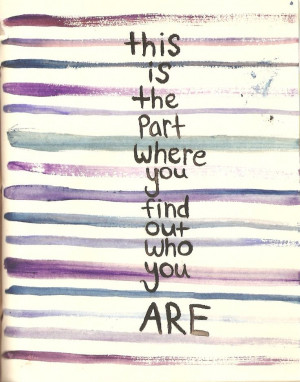 this
is
the
Part
where
you
find
out
who
you
ARE